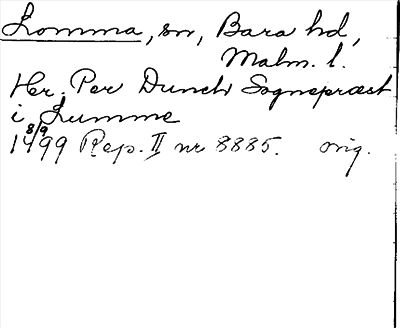 Lomma, sn, Bara hd,
Malm. l.
Her. Per Dunch Sognepræst
i Lumme
8/9
1499 Rep. II nr 8885. orig.